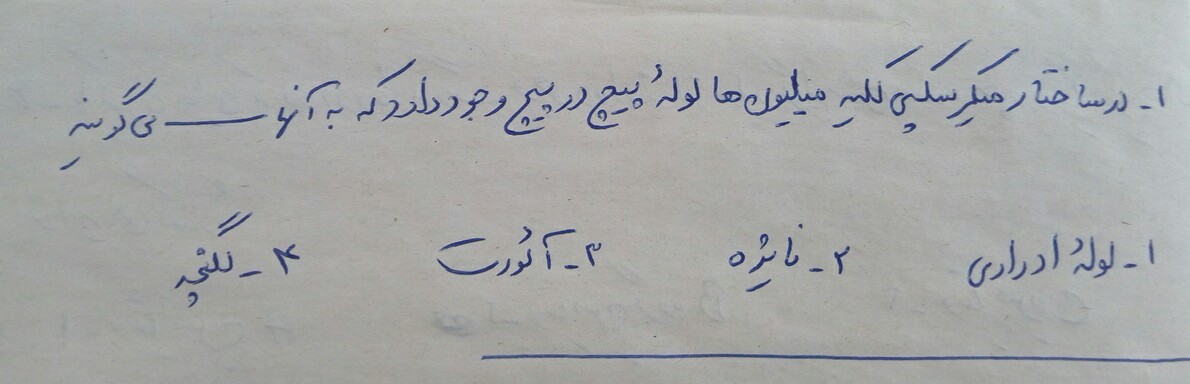 ۱- در ساختار میکرسکپی کلیه میلیون ها لولهٔ پیچ در پیچ وجود دارد که به آنها ——— می گویند
۱- لولهٔ ادراری ۲- نایژه ۳- آئورت ۴- گلنچه